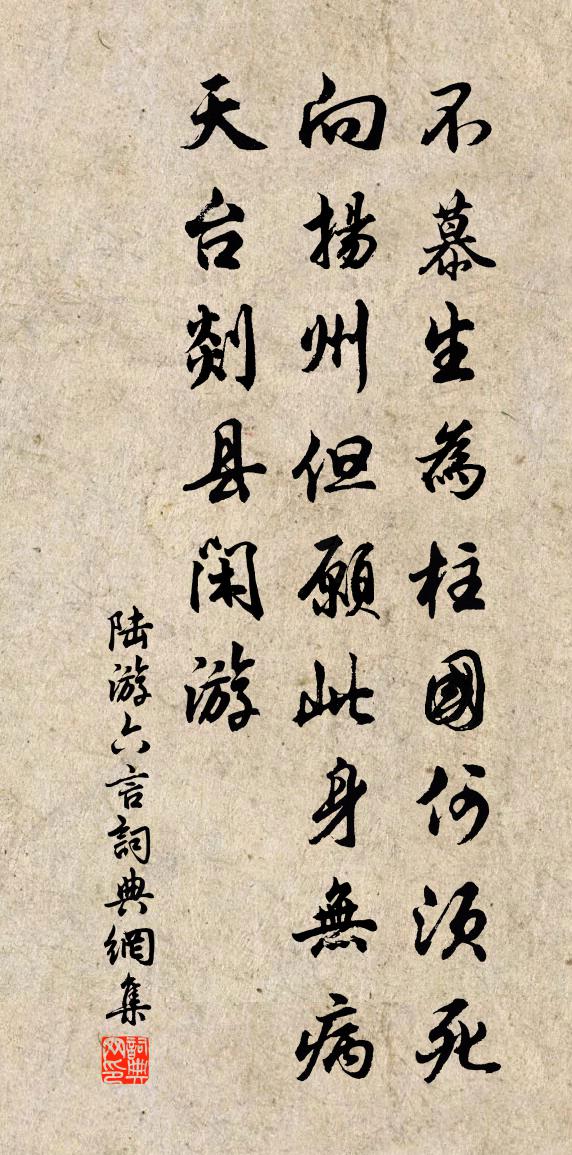 不慕生為柱國何須死
向揚州但願此身無病
天台剡县閑游
陆游六言詞典網集
詞典網印